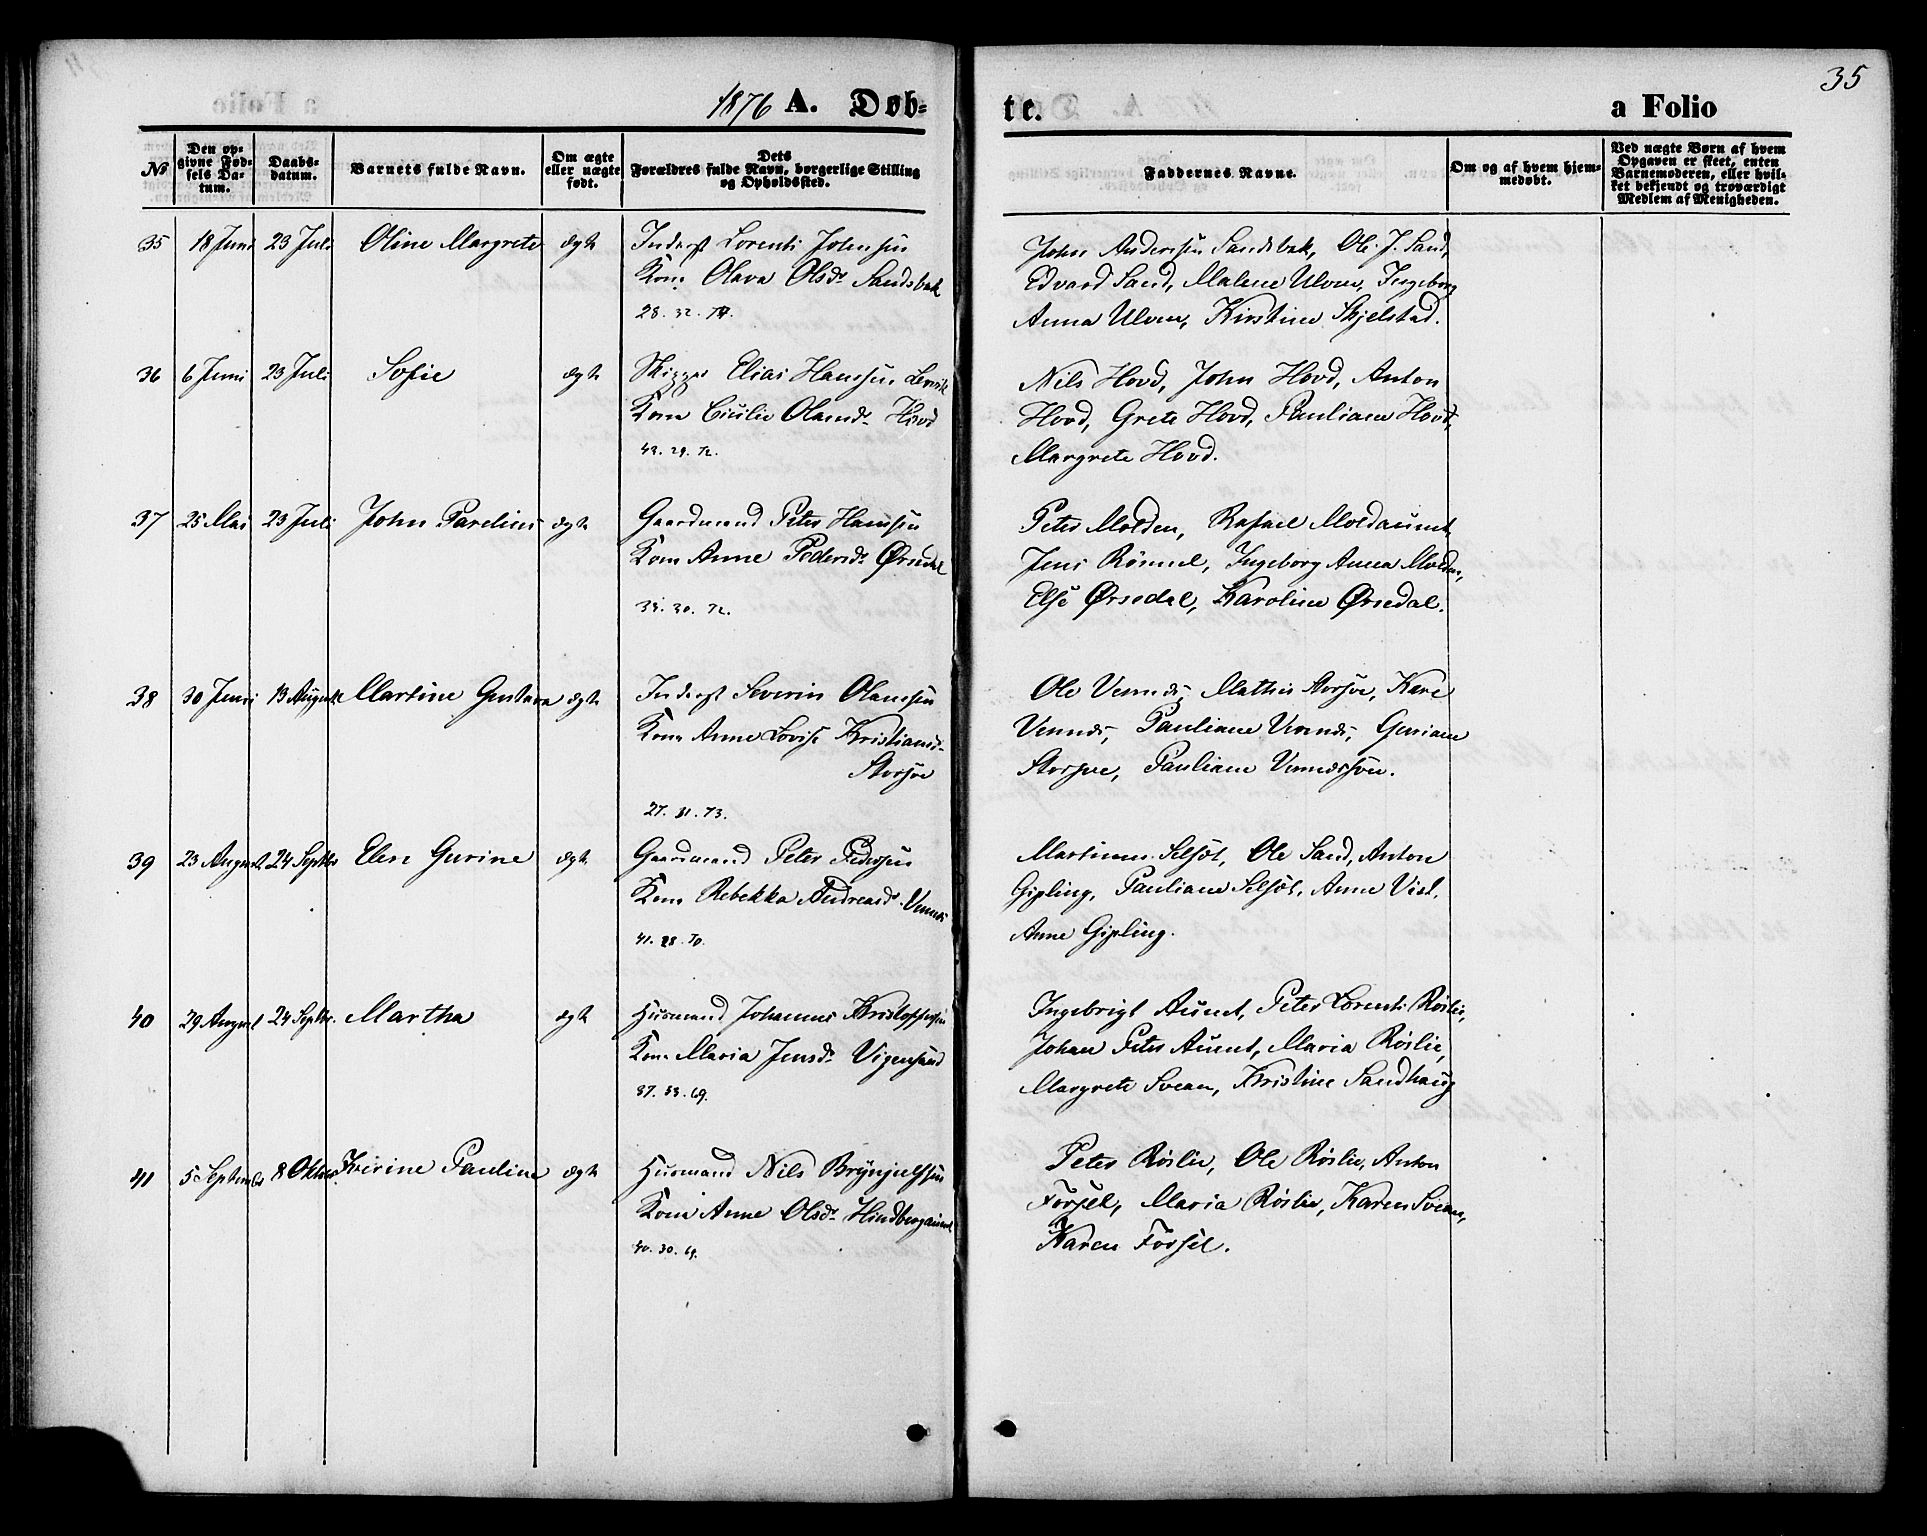 35
1876 A. Døb=
te.
a Folio
No
Den op-
givne Fød-
sels Da-
tum.
Daabs-
datum.
Barnets fulde Navn.
Om ægte
eller uægte
født.
Dets
Forældres fulde Navn, borgerlige Stilling
og Opholdssted.
Faddernes Navne.
Om og af hvem hjem-
medøbt.
Ved uægte Børn af hvem
Opgaven er skeet, enten
Barnemoderen, eller hvil-
ket bekjendt og troværdigt
Medlem af Menigheden.
35 18 Juni 23 Juli Oline Margrete ægte Inderst Lorents Johnsen
Kone Olava Olsdr Sandsbak
28. 32. 74.
John Andersen Sandsbak, Ole J. Sand,
Edvard Sand, Malene Ulven, Ingeborg
Anna Ulven, Kirstine Skjelstad.
36 6 Juni 23 Juli Sofie ægte Skipper Elias Hansen Lervik
Kone Cicilie Olausdr Hovd
43. 29. 72.
Nils Hovd, John Hovd, Anton
Hovd, Grete Hovd, Pauliane Hovd,
Margrete Hovd.
37 25 Mai 23 Juli John Parelius ægte Gaardmand Peter Hansen
Kone Anne Pedersdr Ørsedal
33. 30. 72.
Peter Molden, Rafael Moldaunet,
Jens Rømmel, Ingeborg Anna Molden,
Else Ørsedal, Karoline Ørsedal.
38 30 Juni 13 August Martine Gustava ægte Inderst Severin Olaussen
Kone Anne Lovise Kristiansd.
Storsøe
27. 31. 73.
Ole Vennes, Mathis Storsøe, Kare
Vennes, Pauliane Vennes, Guriane
Storsøe, Pauliane Vennessøen.
39 23 August 24 Septbr Elen Gurine ægte Gaardmand Peter Pedersen
Kone Rebekka Andreasd. Vennes
41. 28. 70.
Martinus Selsøt, Ole Sand, Anton
Gipling, Pauliane Selsøt, Anne Vist,
Anne Gipling.
40 29 August 24 Septbr. Martha ægte Husmand Johannes Kristoffersen
Kone Maria Jensdr Vigensand
37. 33. 69.
Ingebrigt Aunet, Peter Lorents Røslie,
Johan Peter Aunet, Maria Røslie,
Margrete Svean, Kristine Sandhaug
41 5 Septembr 8 Oktober Kririne Pauline ægte Husmand Nils Brynjulfsen
Kone Anne Olsdr Hindbergaunet
40. 30. 69.
Peter Røslie, Ole Røslie, Anton
Forsel, Maria Røslie, Karen Svean,
Karen Forsel.